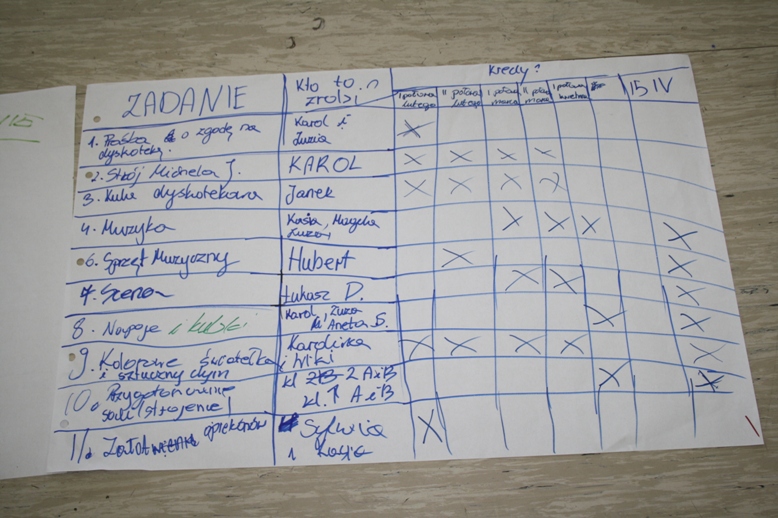 ZADANIE
Kto to
zrobi
Kiedy?
I połowa
lutego
II połowa
lutego
I połowa
marca
II połowa
marca
I połowa
kwietnia
15 IV
1. Prośba o zgodę na
dyskotekę.
Karol i
Zuzia
2. Strój Michela J.
KAROL
3. Kula dyskotekowa
Janek
4. Muzyka
Kasia, Magda
6. Sprzęt Muzyczny
Hubert
7. Scena
Łukasz D.
8. Napoje i kubki
Karol, Zuza
Aneta S.
9. Kolorowe światełka
i sztuczny dym
Karolinka
i Wiki
10. Przygotowanie
sali (strojenie)
kl 2 A i B
kl. 1 A i B
11. Załatwienie opiekunów
Sylwia
i Kasia